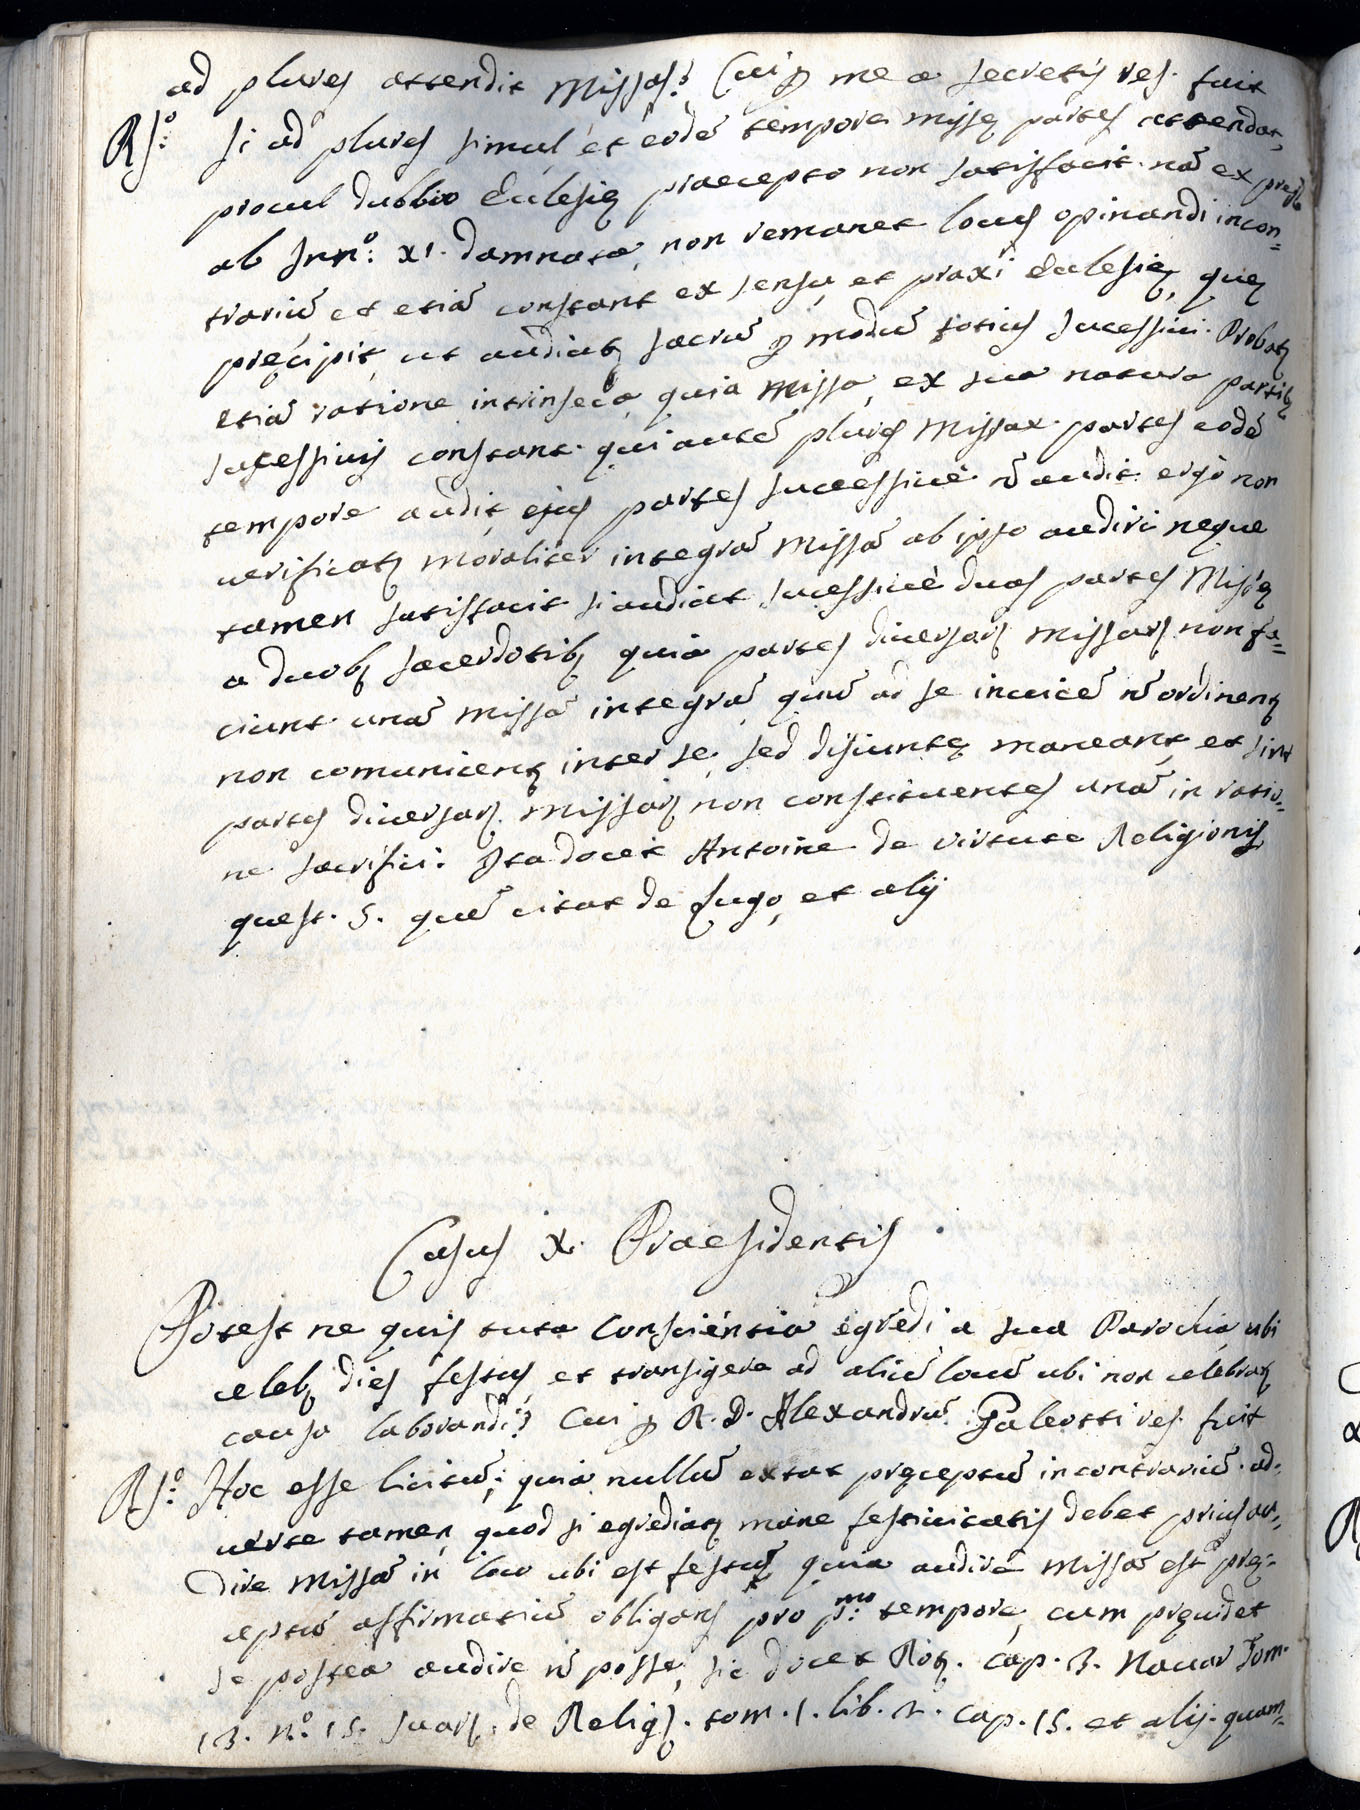 ad plures attendit Missas? Cui ꝑ me a secretis res. fuit
Rſ:º si ad plures simul et eodē tempore missę partes attendat,
procul dubbio Eclesię praecepto non satisfacit. nā ex prop.
ab Inn:º XI. damnata, non remanet locus opinandi incon=
trariū et etiā constant ex sensu, et praxi Eclesię, quę
pręcipit, ut audiatꝫ sacrū ꝑ modū totius sucessiui. Probatꝫ
etiā ratione intrinseca, quia Missa, ex sua natura partibꝫ
sucessiuis constant. qui autē plures Missar. partes eodē
tempore audit, ejus partes sucessiuè n̄ audit. ergò non
uerificatꝫ moraliter integrā Missā ab ipso audiri neque
tamen satisfacit si audiat sucessiuè duas partes Missę
a duobꝫ sacerdotibꝫ quia partes diuersarꝫ missarꝫ non fa=
ciunt unā missā integrā, quū ad se inuicē n̄ ordinentꝫ
non comunicentꝫ inter se, sed disiunctę maneant, et sint
partes diuersarꝫ Missarꝫ non constituentes unā in ratio=
ne sacrifici: Ita docet Antoine de virtute Religionis
quest. 5. quē citat de Lugo, et alij
Casus X. Praesidentis
Potest ne quis tuta Consciéntia egredi a sua Parochia ubi
celebꝫ dies festus, et transigere ad aliū locū ubi non celebratꝫ
causa laborandi? Cui ꝑ R. D. Alexandrū Galeotti res. fuit
Rſ:º Hoc esse licitū; quia nullū extat pręceptū in contrariū. ad=
uerte tamen, quod si egrediatꝫ mane festiuitatis debet prius au=
dire Missā in loco ubi est festū, quia audire Missā est prę=
ceptū affirmatiū obligans pro p:mo tempore, cum pręuidet
se postea audire n̄ posse, sic docet Rotꝫ. cap. 3. Nauar Tom.
13. n.º 15. Suarꝫ. de Religs. tom. 1. lib. 2. cap. 15. et alij. quam=